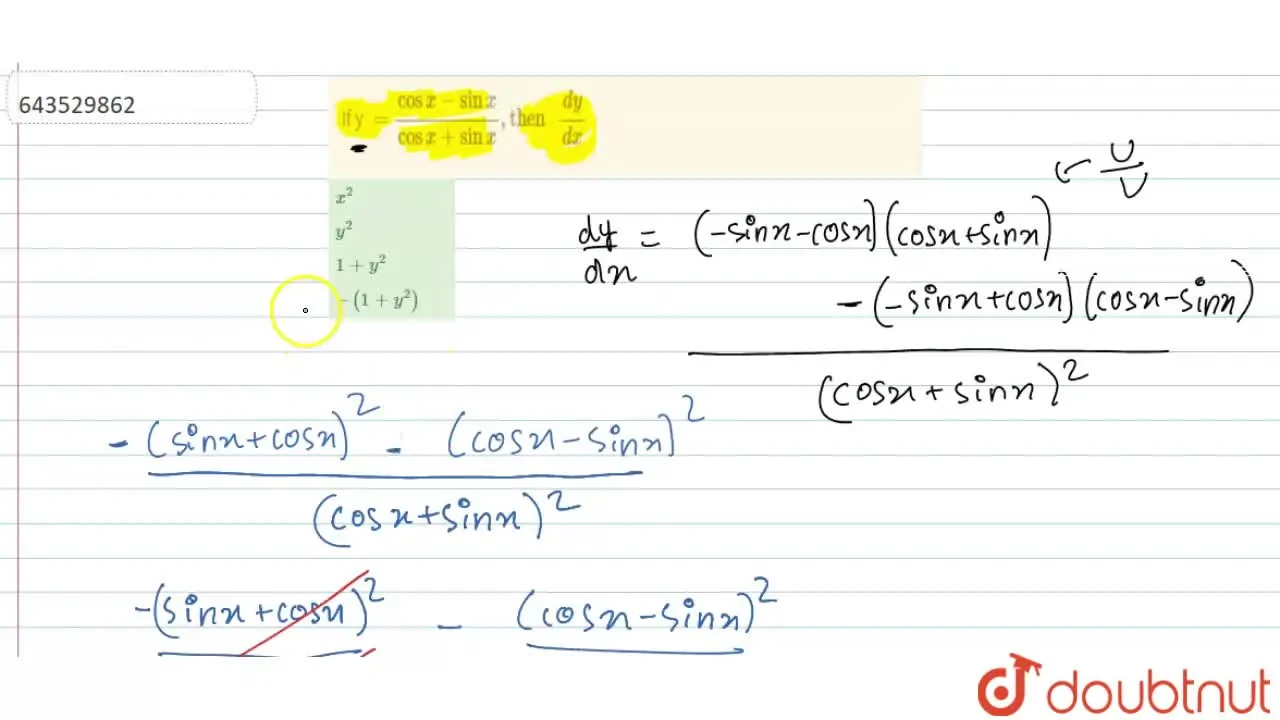 643529862
If y = \frac{cos x − sin x}{cos x + sin x}, then \frac{dy}{dx}
x²
y²
1 + y²
−(1 + y²)
\frac{U}{V}
\frac{dy}{dx} = (-sinx-cosx)(cosx+sinx)
-(-sinx+cosx)(cosx-sinx)
(cosx+sinx)²
-(sinx+cosx)² - (cosx-sinx)²
(cosx+sinx)²
-(sinx+cosx)² - (cosx-sinx)²
doubtnut